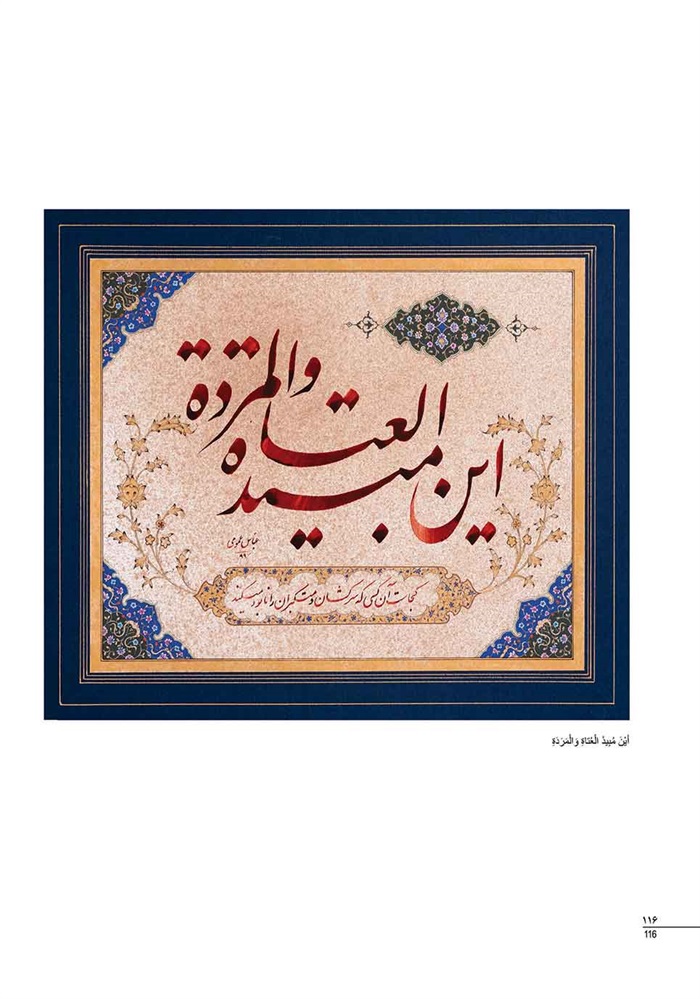 این مبید العتاه والمردة
عباس
کجاست آن کسی که سرکشان و متکبران را نابود میکند
أَيْنَ مُبِيدُ الْعُتَاةِ وَالْمَرَدَةِ
۱۱۶
116